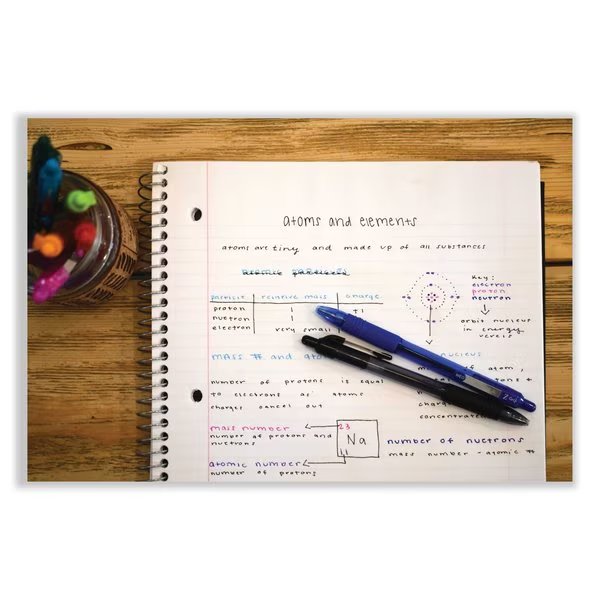 atoms and elements
atoms are tiny and made up of all substances
particle relative mass charge
proton 1 +1
nuetron 1
electron very small
key:
electron
proton
neutron
orbit nucleus
in energy
levels
mass # and
nucleus
number of protons is equal
to electrons
charges cancel out
concentrated
mass number
number of protons and
nuetrons
23
Na
11
atomic number
number of protons
number of nuetrons
mass number - atomic #